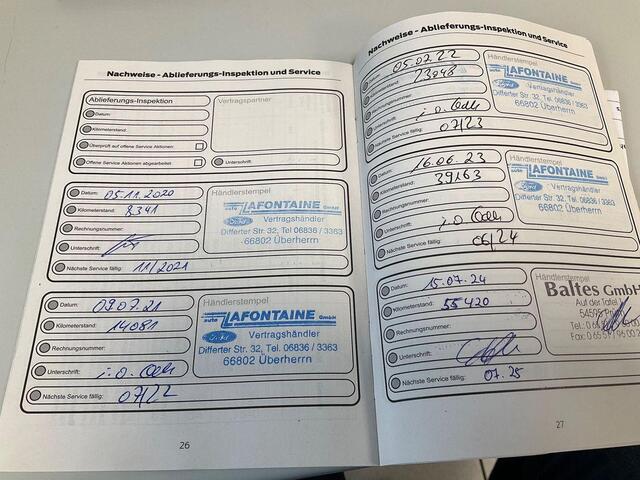 Nachweise - Ablieferungs-Inspektion und Service
Ablieferungs-Inspektion
Vertragspartner
Datum:
Kilometerstand:
Überprüft auf offene Service Aktionen:
Offene Service Aktionen abgearbeitet:
Unterschrift:
Datum: 05.11.2020
Kilometerstand: 8341
Rechnungsnummer:
Unterschrift:
Nächste Service fällig: 11/2021
Händlerstempel
auto LAFONTAINE GmbH
Ford Vertragshändler
Differter Str. 32, Tel. 06836 / 3363
66802 Überherrn
Datum: 07.07.21
Kilometerstand: 14081
Rechnungsnummer:
Unterschrift:
Nächste Service fällig: 07/22
Händlerstempel
auto LAFONTAINE GmbH
Vertragshändler
Differter Str. 32, Tel. 06836 / 3363
66802 Überherrn
26
Nachweise - Ablieferungs-Inspektion und Service
05.07.22
23048
Rechnungsnummer:
Nächste Service fällig: 07/23
Händlerstempel
LAFONTAINE
Ford Vertragshändler
Differter Str. 32, Tel. 06836 / 3363
66802 Überherrn
Datum: 16.06.23
Kilometerstand: 39163
Rechnungsnummer:
Unterschrift:
Nächste Service fällig: 06/24
Händlerstempel
auto LAFONTAINE
Ford Vertragshändler
Differter Str. 32, Tel. 06836 / 3363
66802 Überherrn
Datum: 15.07.24
Kilometerstand: 55420
Rechnungsnummer:
Unterschrift:
Nächste Service fällig: 07.25
Händlerstempel
Baltes GmbH
Auf der
54595
Tel.:
Fax:
27